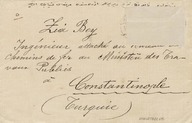 Zia Bey
Ingénieur attaché au
Chemins de fer au Ministère des Tra-
vaux Publics
à
Constantinople
(Turquie)